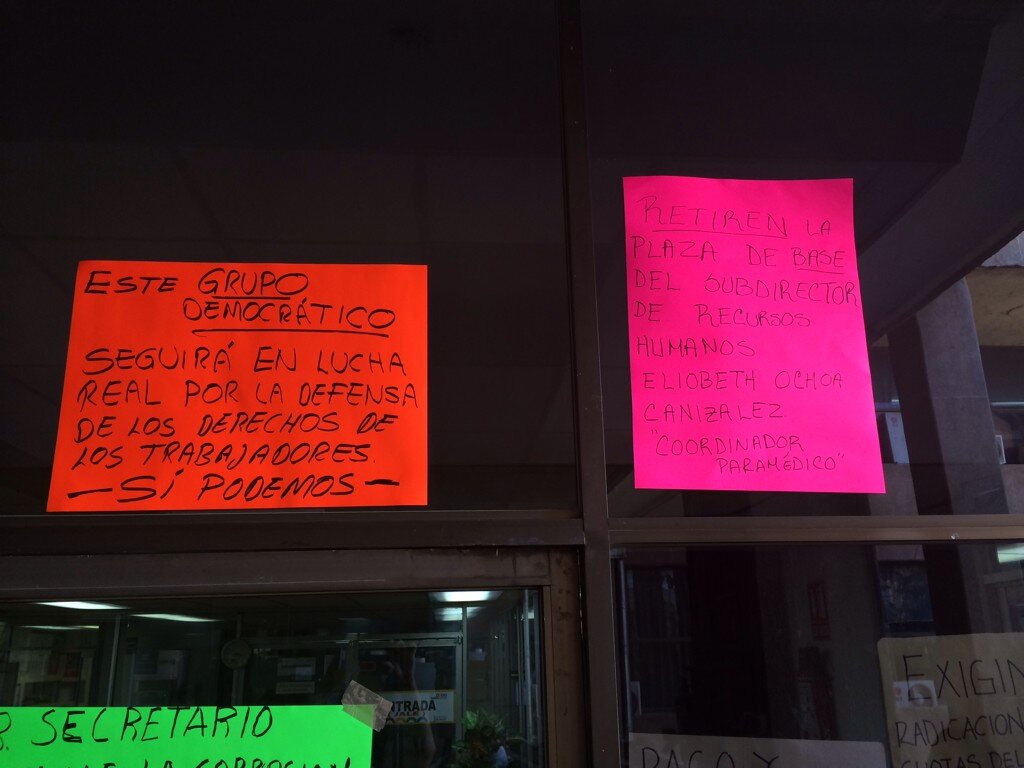 ESTE GRUPO
DEMOCRÁTICO
SEGUIRÁ EN LUCHA
REAL POR LA DEFENSA
DE LOS DERECHOS DE
LOS TRABAJADORES.
—SÍ PODEMOS—
RETIREN LA
PLAZA DE BASE
DEL SUBDIRECTOR
DE RECURSOS
HUMANOS
ELIOBETH OCHOA
CANIZALEZ
"COORDINADOR
PARAMÉDICO"
NTRADA
JALE
SECRETARIO
LA
EXIGIM
RADICACION
CUOTAS DEL
PAGO Y